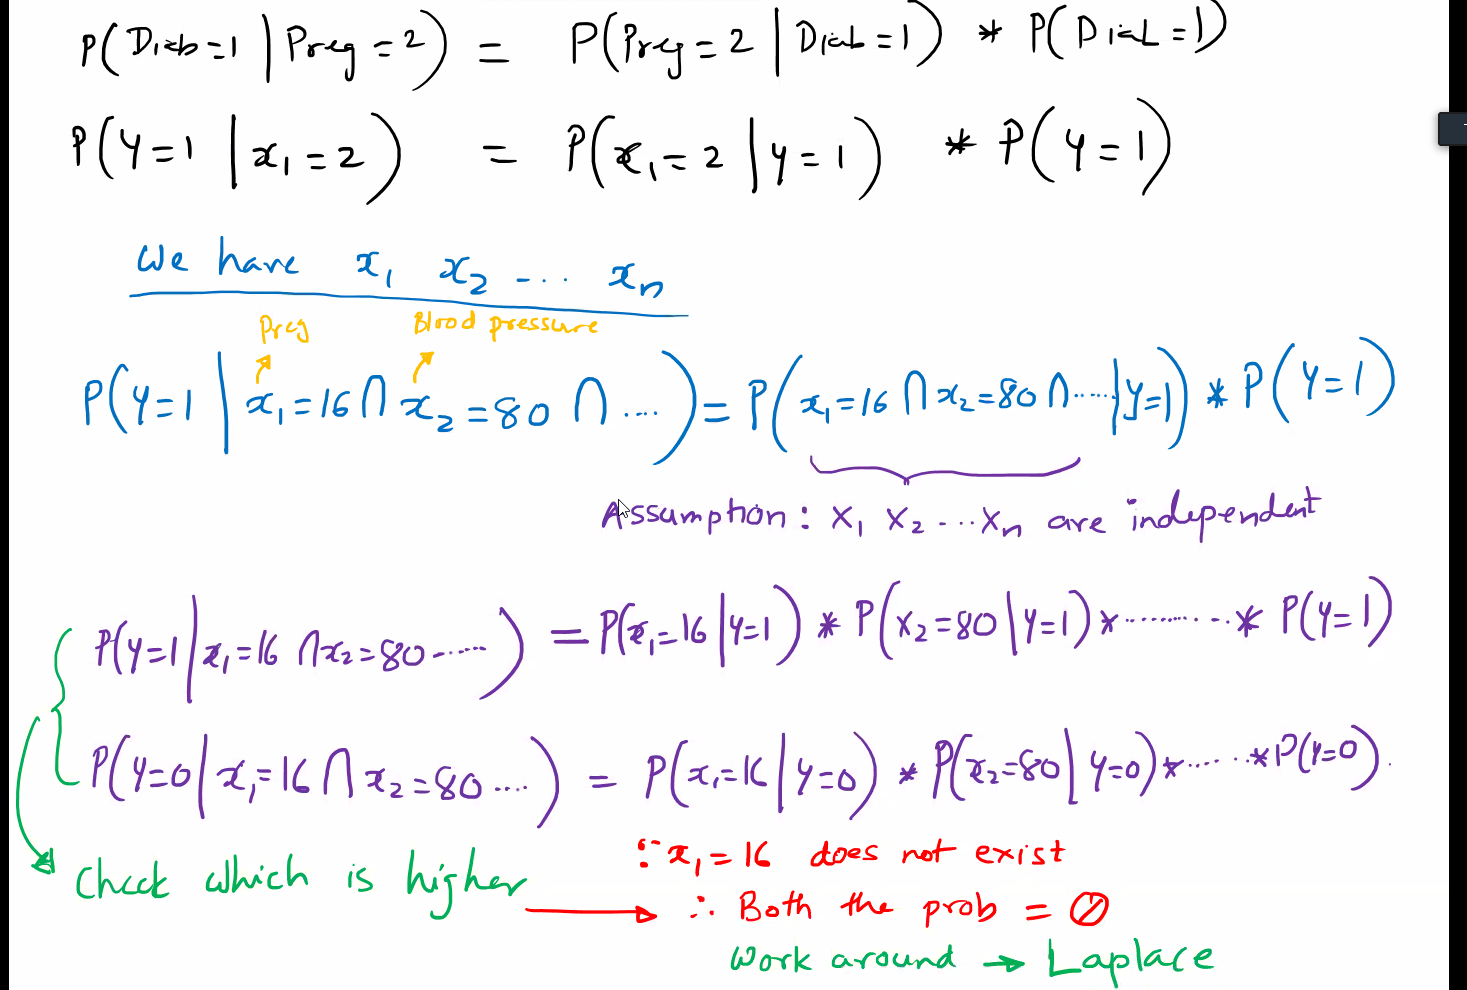 P(Diab=1 | Preg=2) = P(Preg=2 | Diab=1) * P(Diab=1)
P(Y=1 | x₁=2) = P(x₁=2 | y=1) * P(y=1)
We have x₁ x₂ ... xₙ
Preg Blood pressure
P(Y=1 | x₁=16 ∩ x₂=80 ∩ ....) = P(x₁=16 ∩ x₂=80 ∩ ..... | y=1) * P(Y=1)
Assumption: x₁ x₂ ... xₙ are independent
P(Y=1 | x₁=16 ∩ x₂=80 ......) = P(x₁=16 | Y=1) * P(x₂=80 | Y=1) * ......... * P(Y=1)
P(Y=0 | x₁=16 ∩ x₂=80 ....) = P(x₁=16 | Y=0) * P(x₂=80 | Y=0) * ...... * P(Y=0)
∵ x₁=16 does not exist
Check which is higher → ∴ Both the prob = 0
Work around → Laplace